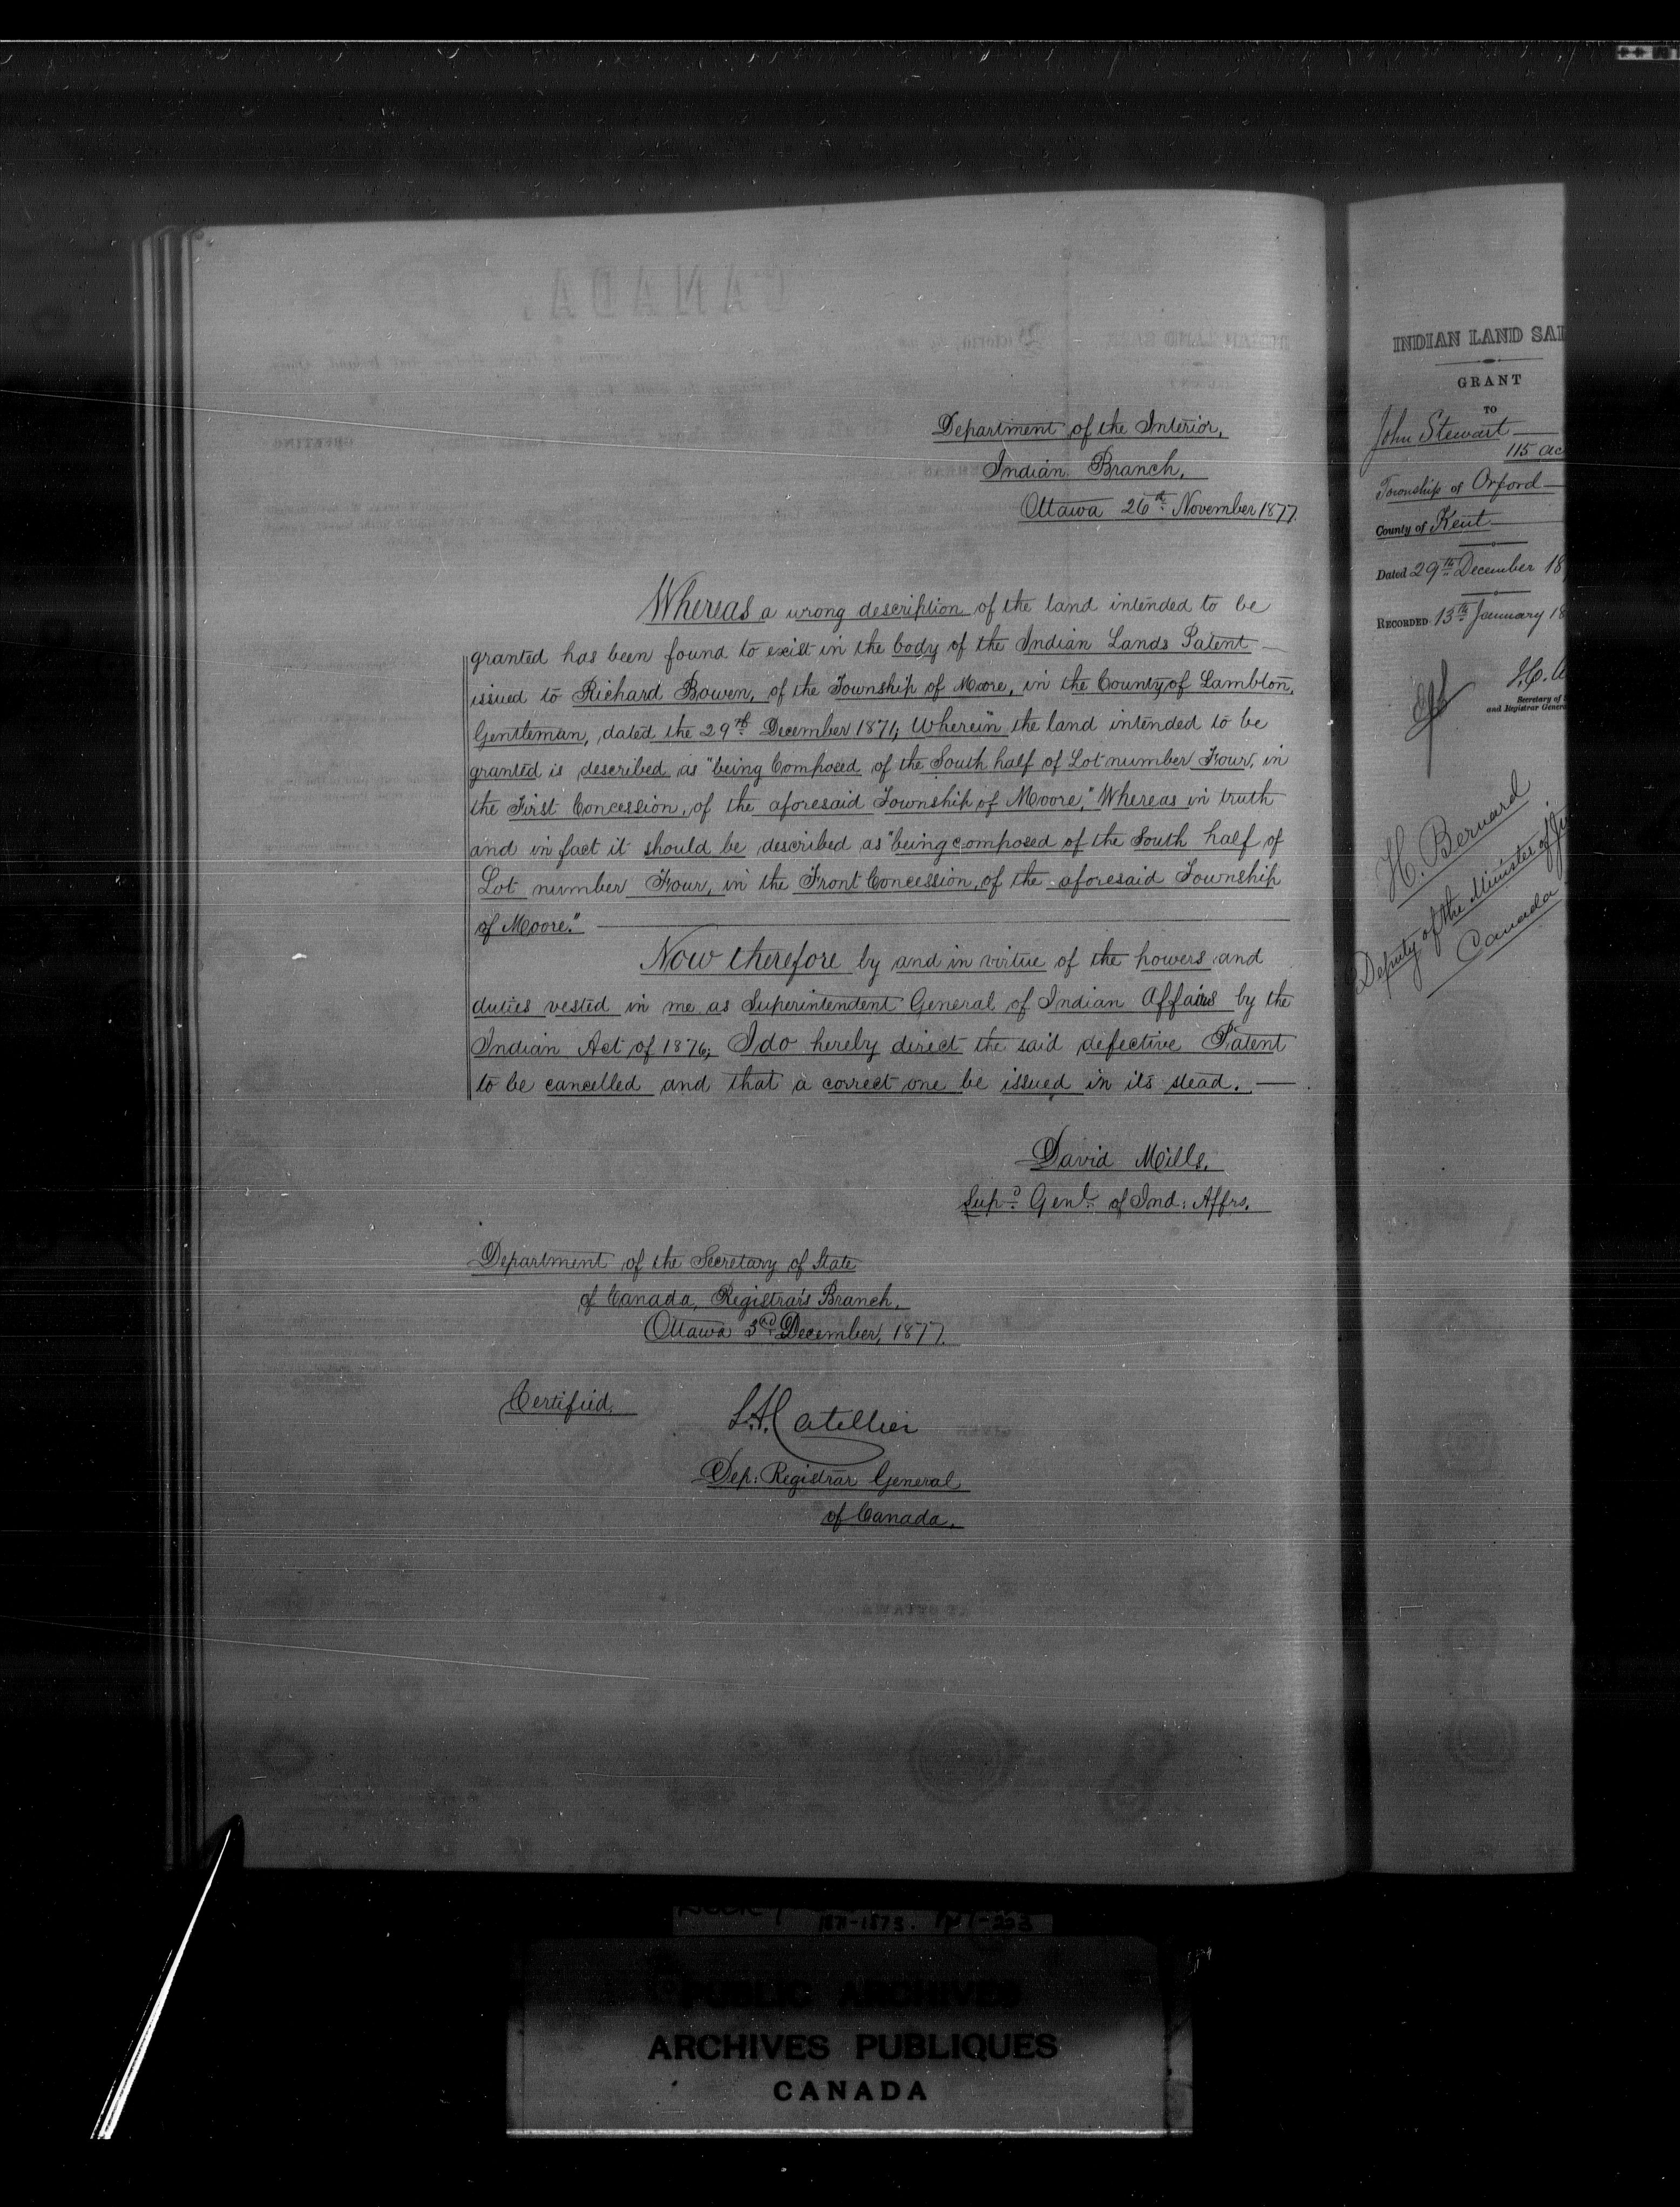 Department of the Interior,
Indian Branch,
Ottawa 26th November 1877.
Whereas a wrong description of the land intended to be
granted has been found to exist in the body of the Indian Lands Patent
issued to Richard Bowen, of the Township of Moore, in the County of Lambton,
Gentleman, dated the 29th December 1871; Wherein the land intended to be
granted is described as "being Composed of the South half of Lot number Four, in
the First Concession, of the aforesaid Township of Moore," Whereas in truth
and in fact it should be described as "being composed of the South half of
Lot number Four, in the Front Concession, of the aforesaid Township
of Moore."
Now therefore by and in virtue of the powers and
duties vested in me as Superintendent General of Indian Affairs by the
Indian Act of 1876; I do hereby direct the said defective Patent
to be cancelled and that a correct one be issued in its stead.
David Mills.
Supd Genl of Ind: Affrs.
Department of the Secretary of State
of Canada, Registrar's Branch.
Ottawa 3rd December, 1877.
Certified.
L.A. Catellier
Dep: Registrar General
of Canada.
INDIAN LAND SAL
GRANT
TO
John Stewart
115 ac
Township of Orford
County of Kent
Dated 29th December 18
RECORDED 13th January 18
Secretary of
and Registrar Genera
H. Bernard
Deputy of the Minister of Ju
Canada
1871-1873.
PUBLIC ARCHIVES
ARCHIVES PUBLIQUES
CANADA